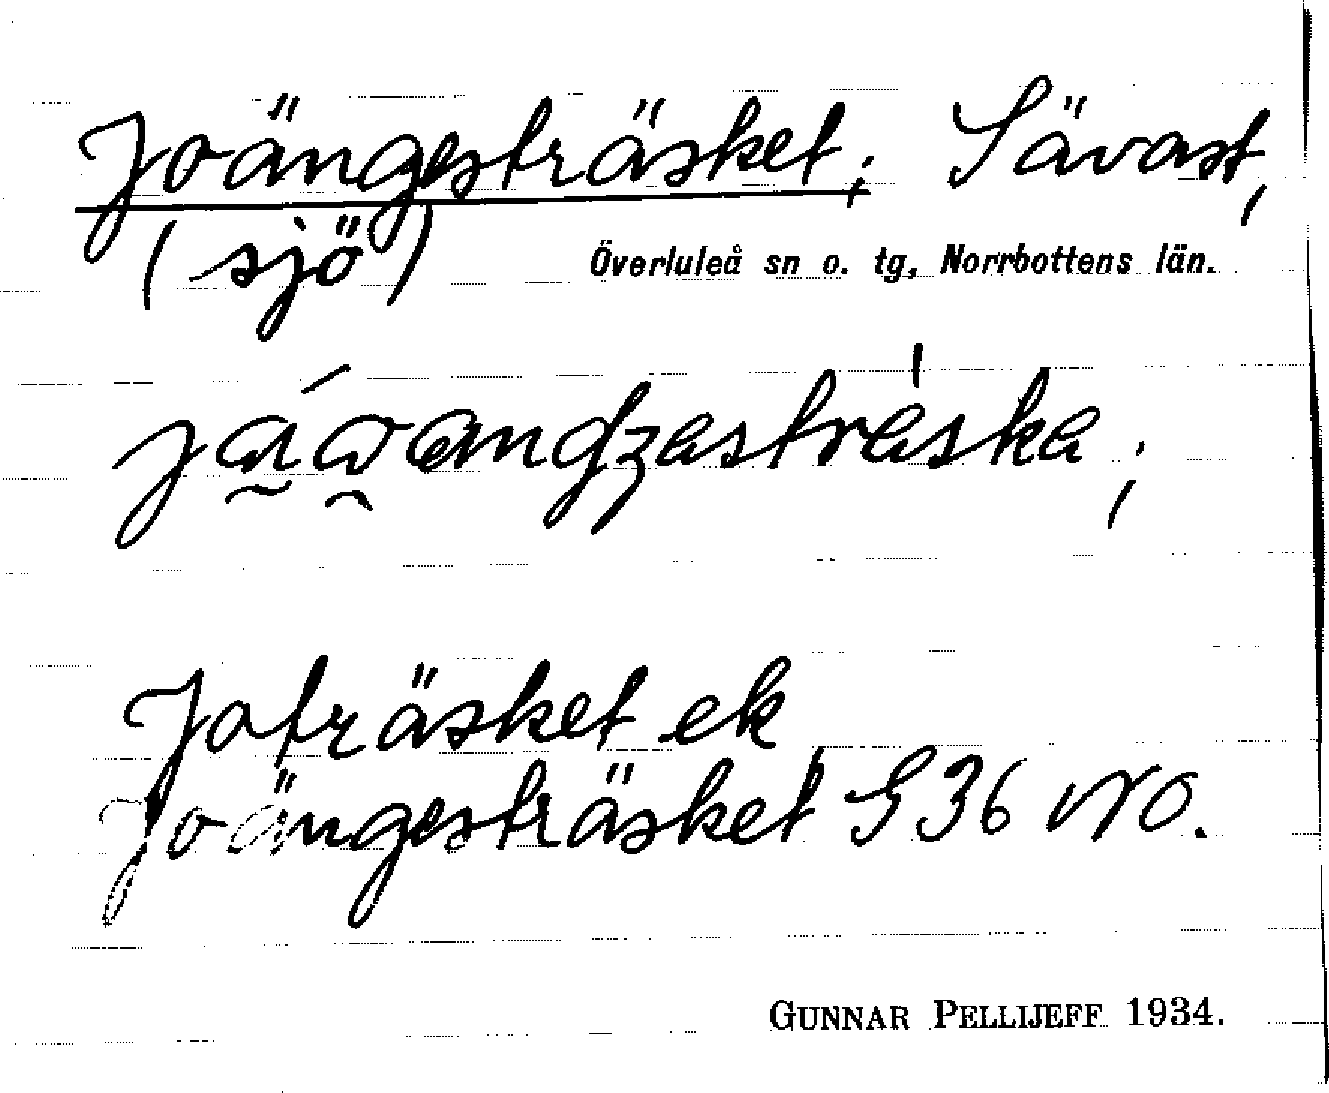 Joängesträsket; Sävast,
(sjö) Överluleå sn o. tg, Norrbottens län.
Joträsket ek
Joängesträsket G36 NO.
GUNNAR PELLIJEFF 1934.